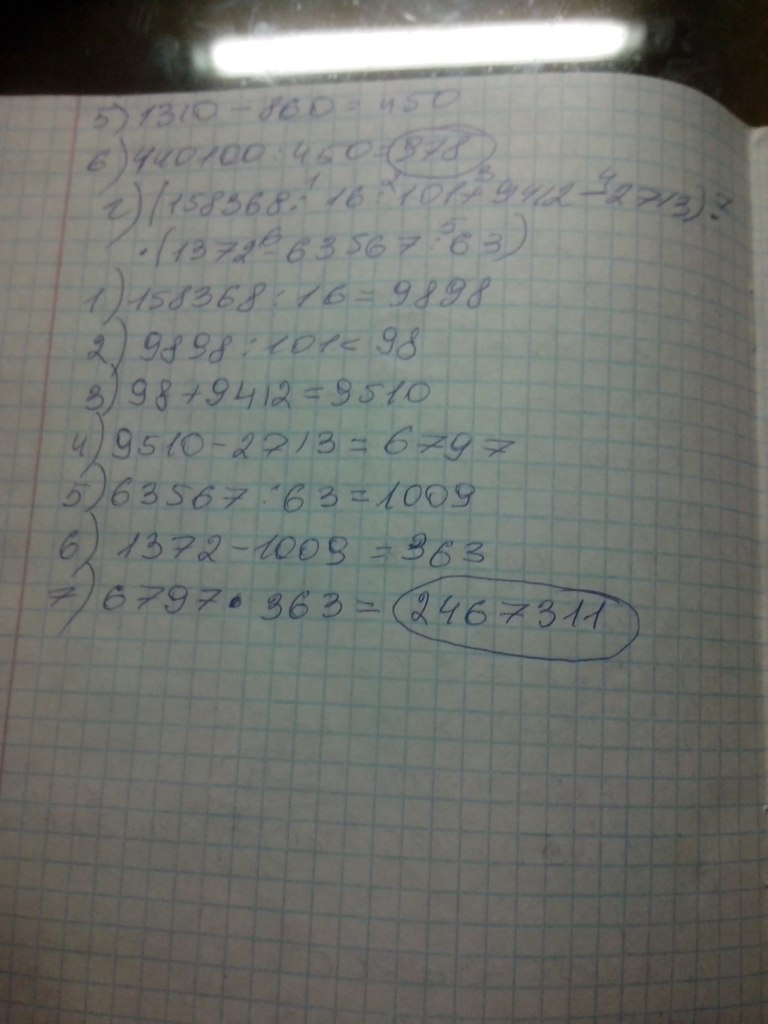 5) 1310 - 860 = 450
6) 440100 : 450 = 978
г) (158368 : 16 : 101 + 9412 - 2713) 7
1 2 3 4
· (1372 - 63567 : 63)
6 5
1) 158368 : 16 = 9898
2) 9898 : 101 = 98
3) 98 + 9412 = 9510
4) 9510 - 2713 = 6797
5) 63567 : 63 = 1009
6) 1372 - 1009 = 363
7) 6797 · 363 = 2467311